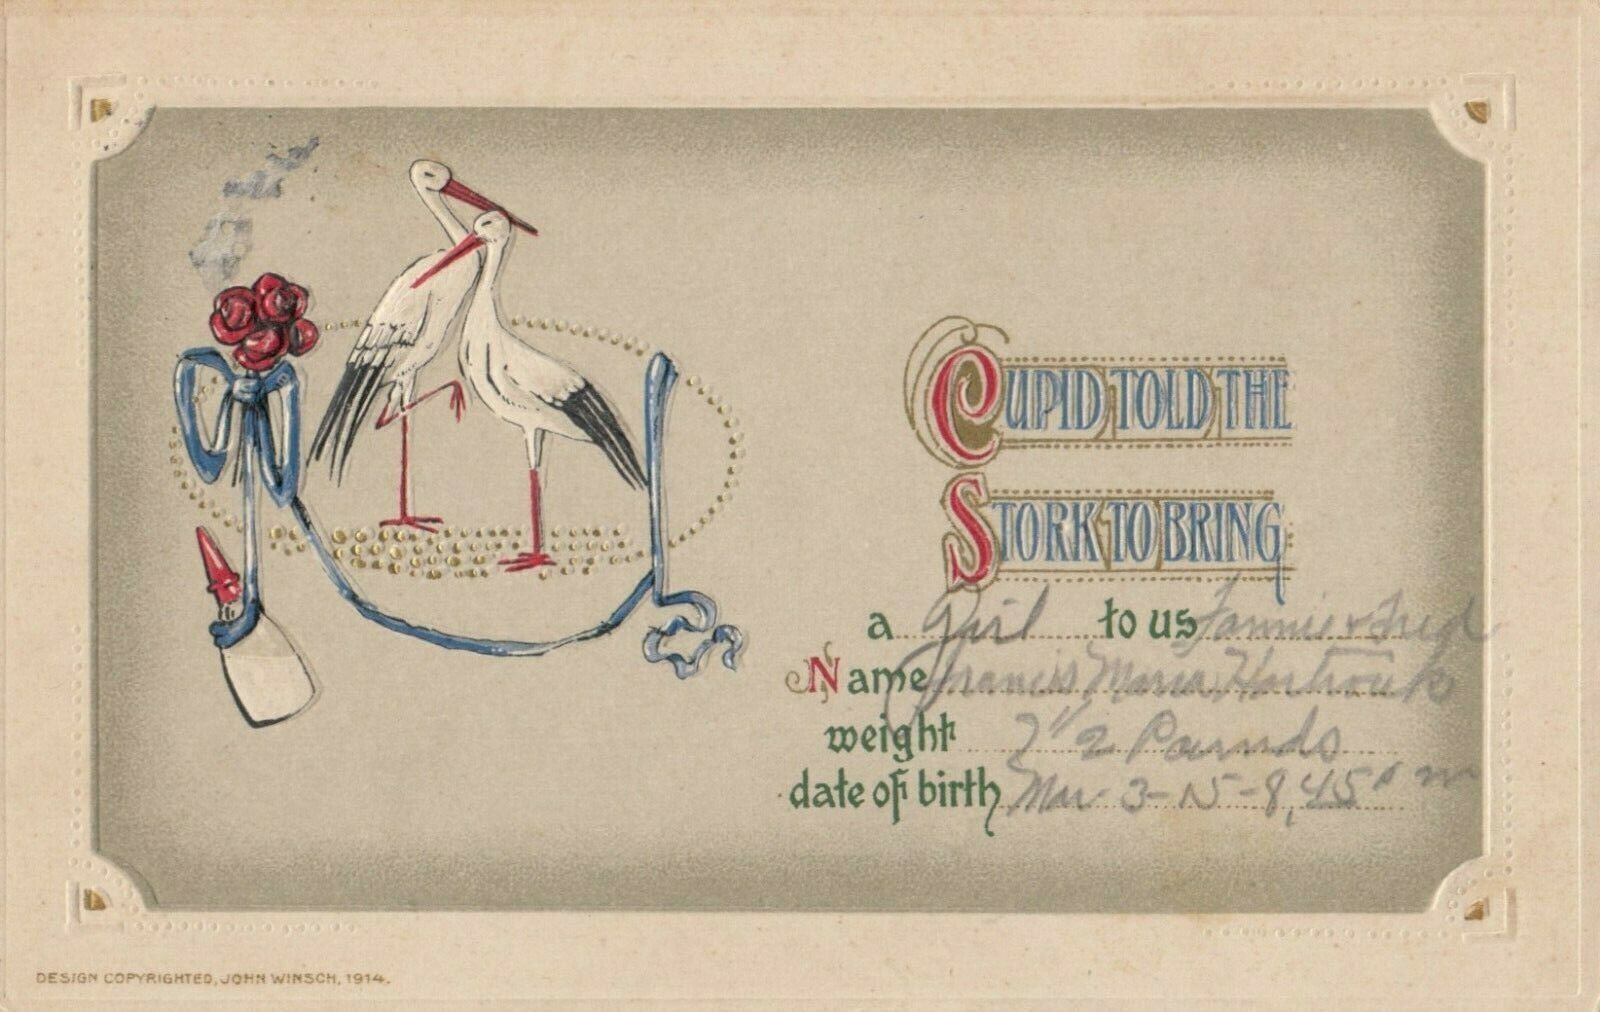 CUPID TOLD THE
STORK TO BRING
a Girl to us Fannie & Fred
Name Francis Maria
weight 7 1/2 Pounds
date of birth Mar 3-15-8,45 m
DESIGN COPYRIGHTED, JOHN WINSCH, 1914.